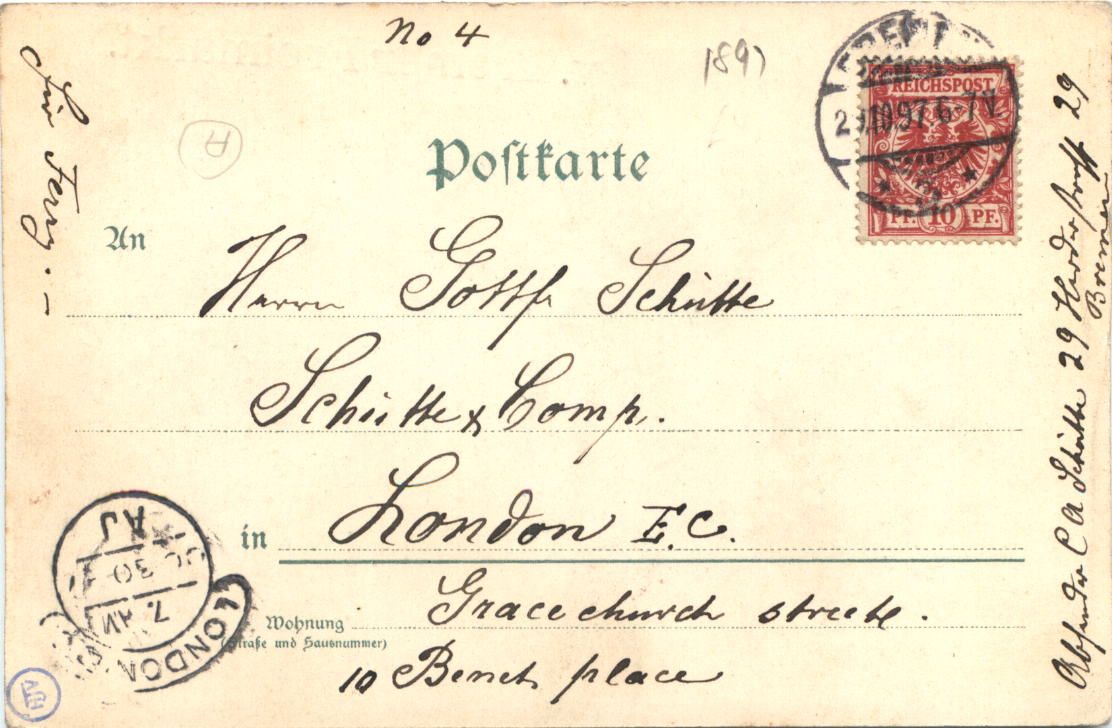 No 4
1897
Für Ferry. —
A
Postkarte
BREMEN
10 97 6-7 N
REICHSPOST
PF. 10 PF.
An
Herrn Gottf Schütte
Schütte & Comp.
in London E.C.
Wohnung
(Straße und Hausnummer)
Gracechurch streete.
10 Benet place
LONDON
7. AM
30
AJ
Absender C A Schütte 29 Herderstrasse 29
Bremen